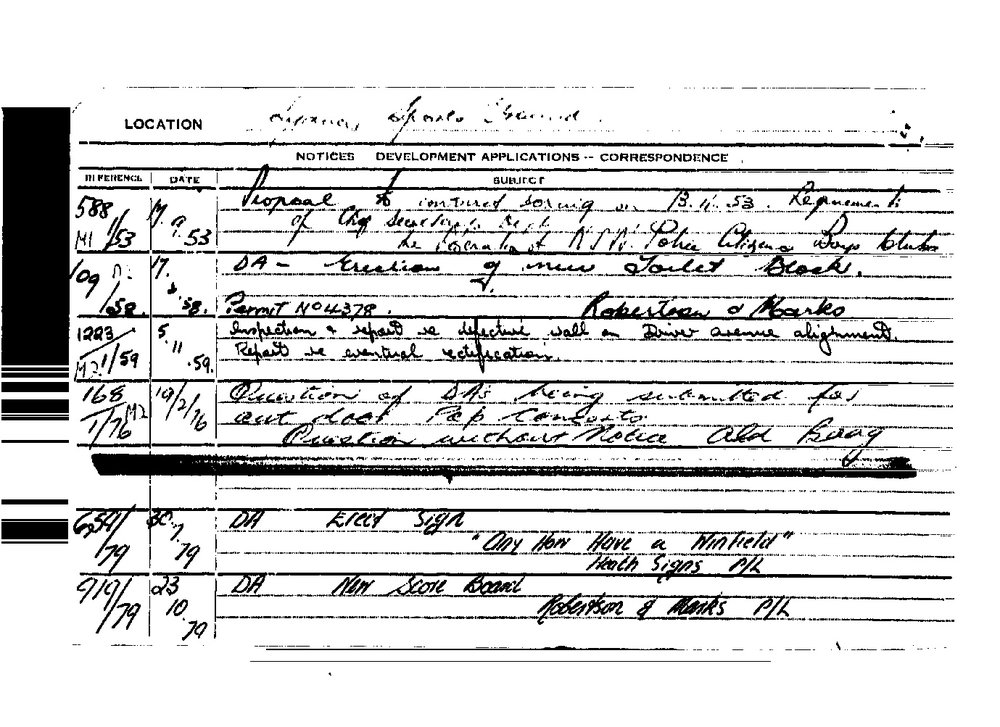 LOCATION Sports Ground
NOTICES DEVELOPMENT APPLICATIONS -- CORRESPONDENCE
REFERENCE DATE SUBJECT
588 17. Proposal to boxing on 13.11.53. Requirements
M1/53 9.53 of Chief Secretary's Dept.
N.S.W. Police Citizens Boys Clubs
109 17. DA - Erection of new Toilet Block.
/58. .58. Permit No 4378. Robertson & Marks
1223 5. Inspection & report re defective wall on Driver avenue alignment.
M2 1/59 11 .59. Report re eventual rectification.
168 19/2/76 Question of DA's being submitted for
1/76 M2 out door Pop Concerts
Question without Notice Ald Barry
654/ 30. DA Erect Sign
/79 7 79 "Any How Have a Winfield"
Heath Signs P/L
919/ 23 DA New Score Board
/79 10 Robertson & Marks P/L
79